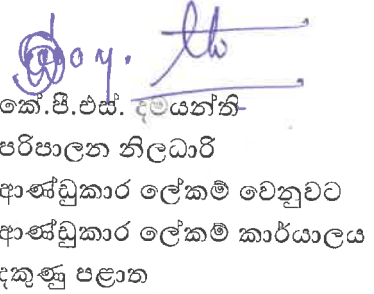 කේ.පී.එස්. දමයන්ති
පරිපාලන නිලධාරි
ආණ්ඩුකාර ලේකම් වෙනුවට
ආණ්ඩුකාර ලේකම් කාර්යාලය
දකුණු පළාත